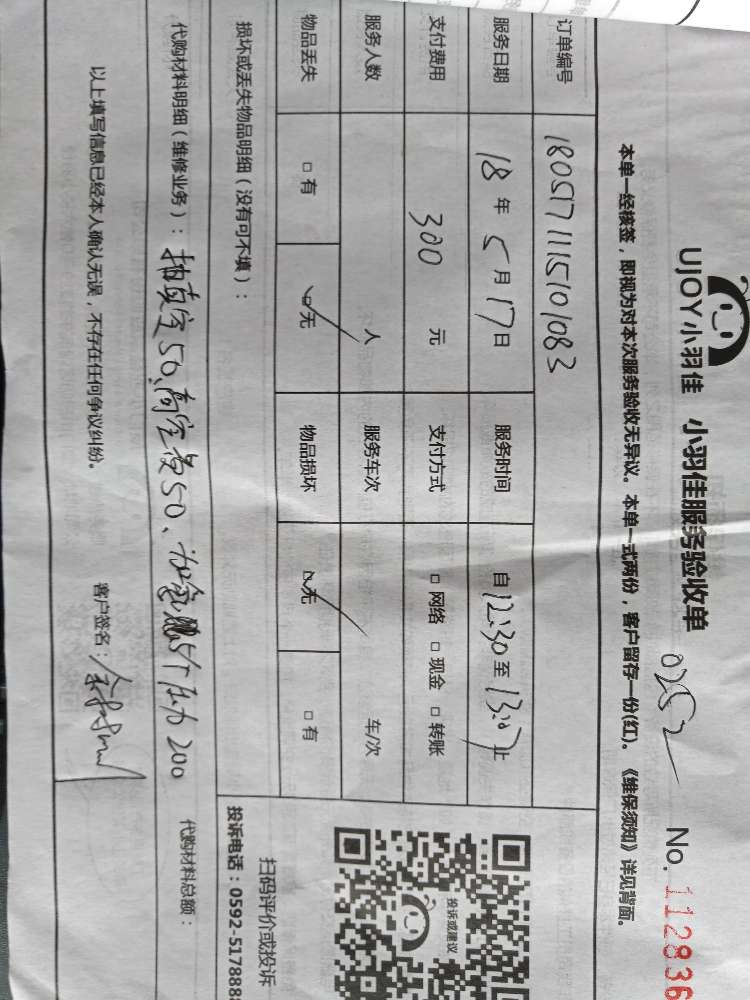 UJOY小羽佳 小羽佳服务验收单 0252 No. 112836
本单一经核签，即视为对本次服务验收无异议。本单一式两份，客户留存一份(红)。《维保须知》详见背面。
订单编号 1805171115101083
服务日期 18 年 5 月 17 日 服务时间 自 12:30 至 13:07 止
支付费用 300 元 支付方式 □ 网络 □ 现金 □ 转账
服务人数 人 服务车次 车/次
物品丢失 □ 有 □ 无 物品损坏 □ 无 □ 有
损坏或丢失物品明细（没有可不填）：
代购材料明细（维修业务）：抽真空50、高空费50、加 5个压力 200 代购材料总额：
以上填写信息已经本人确认无误，不存在任何争议纠纷。 客户签名：
投诉或建议
扫码评价或投诉
投诉电话：0592-5178888